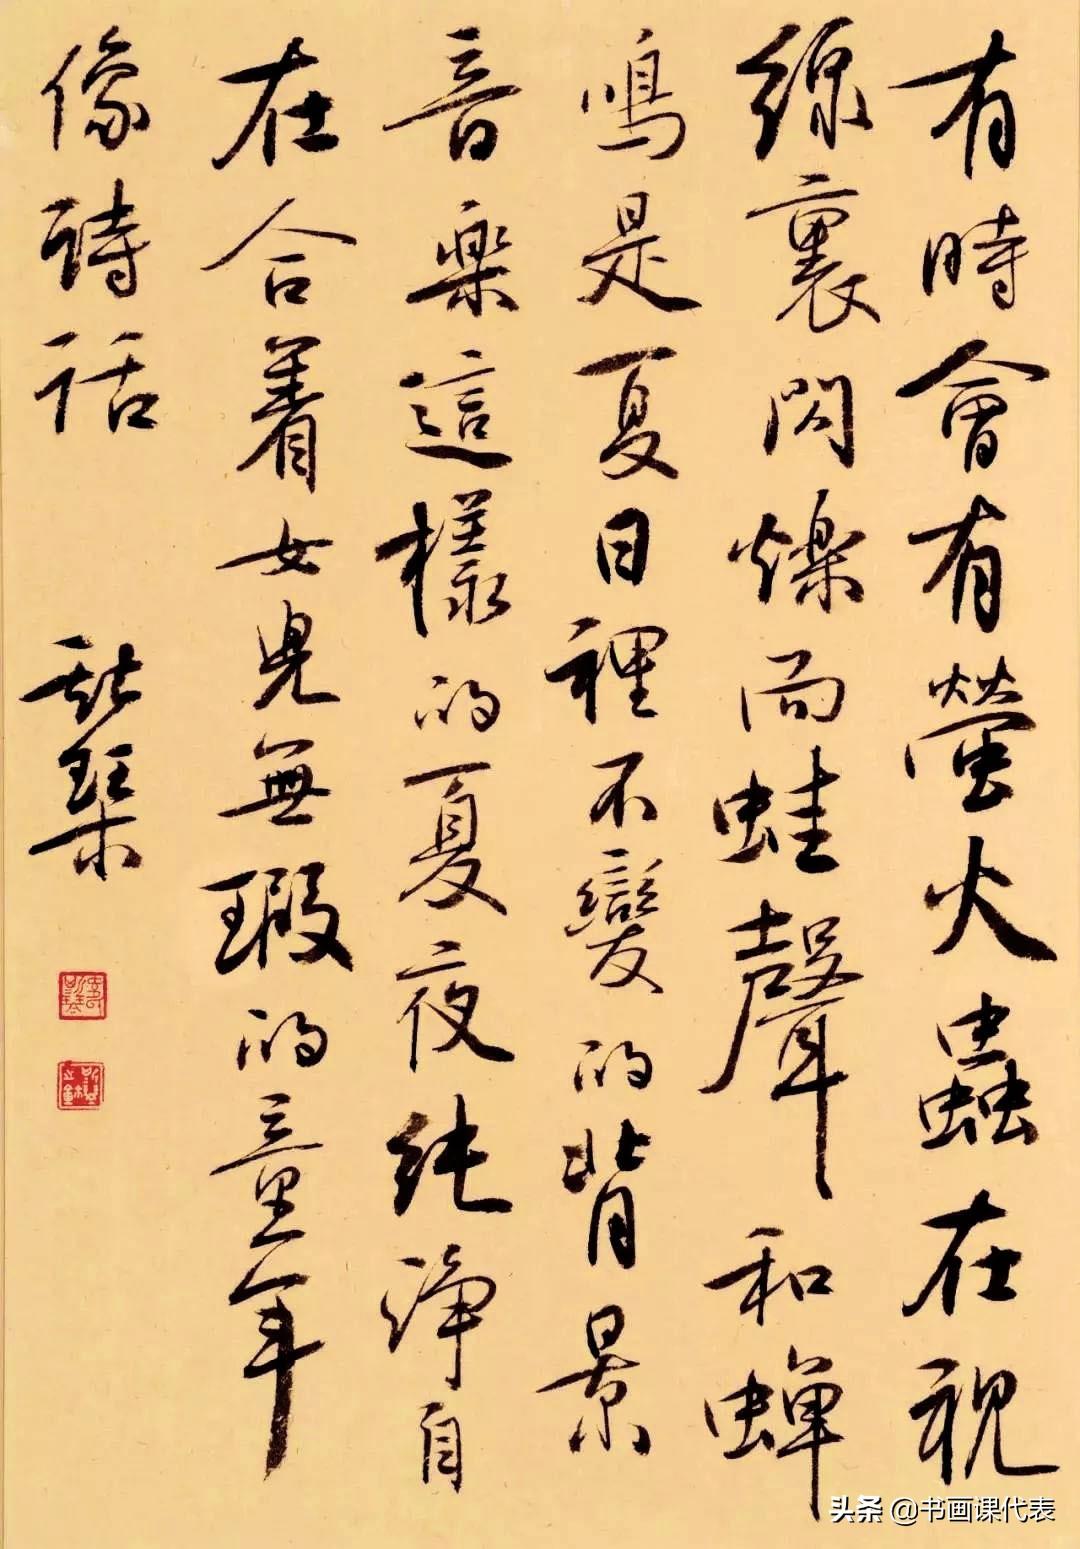 有時會有螢火蟲在視
線裏閃爍而蛙聲和蟬
鳴是夏日裡不變的背景
音樂這樣的夏夜純淨自
在合着女兒無瑕的童年
像詩話
头条 @书画课代表